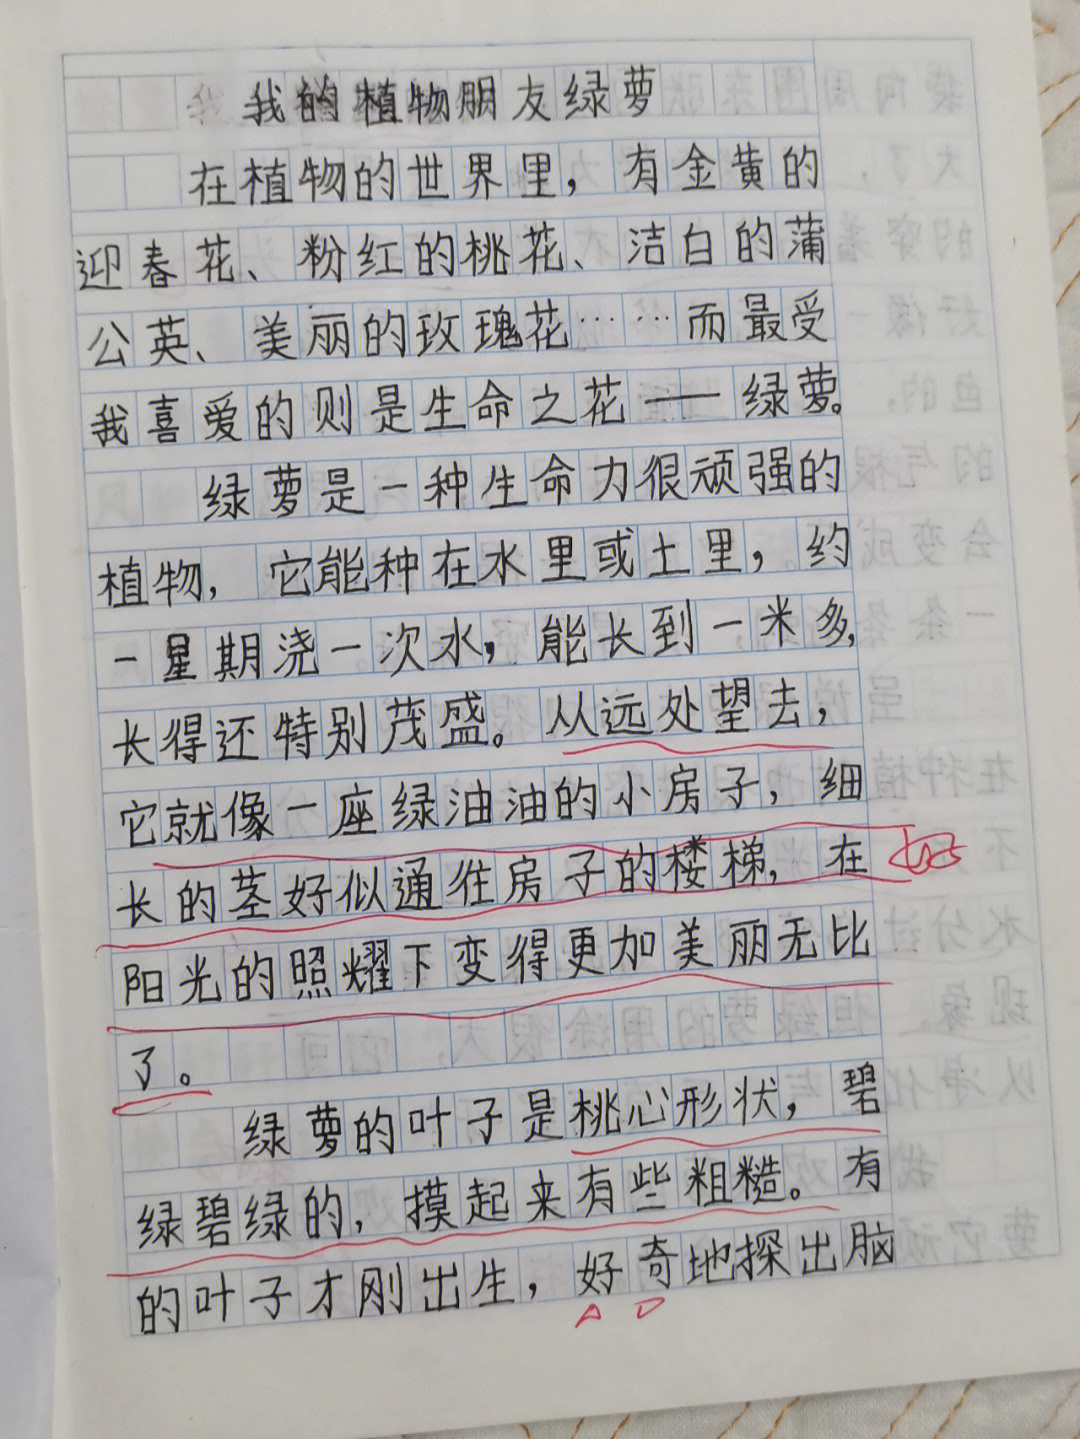 我的植物朋友绿萝
在植物的世界里，有金黄的
迎春花、粉红的桃花、洁白的蒲
公英、美丽的玫瑰花……而最受
我喜爱的则是生命之花——绿萝。
绿萝是一种生命力很顽强的
植物，它能种在水里或土里，约
一星期浇一次水，能长到一米多，
长得还特别茂盛。从远处望去，
它就像一座绿油油的小房子，细
长的茎好似通往房子的楼梯，在
阳光的照耀下变得更加美丽无比
了。
绿萝的叶子是桃心形状，碧
绿碧绿的，摸起来有些粗糙。有
的叶子才刚出生，好奇地探出脑